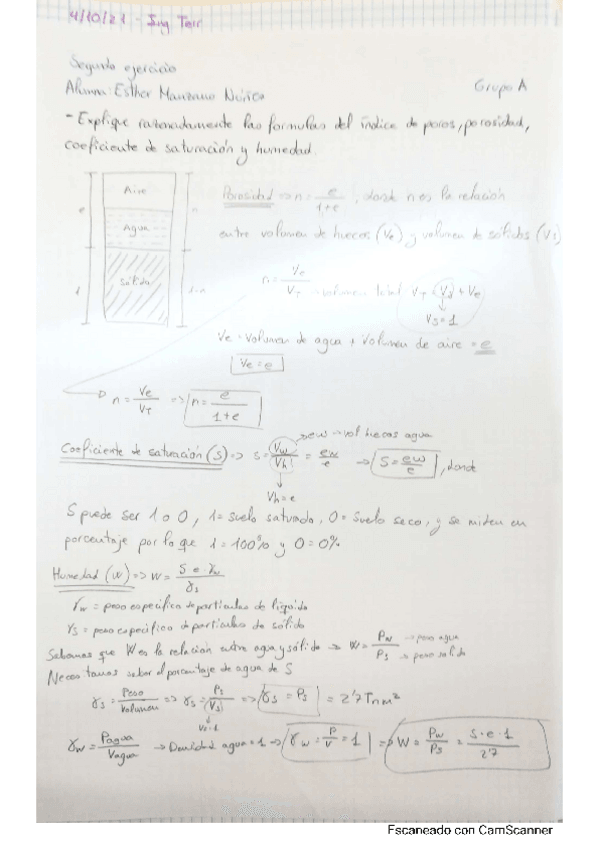 4/10/21 - Ing Terr
Segundo ejercicio
Alumna: Esther Manzano Núñez
Grupo A
- Explique razonadamente las formulas del índice de poros, porosidad,
coeficiente de saturación y humedad.
Aire
Agua
Sólido
e
1
n
1-n
Porosidad => n = e/(1+e), donde n es la relación
entre volumen de huecos (Ve) y volumen de sólidos (Vs)
n = Ve/VT → volumen total VT = Vs + Ve
Vs = 1
Ve = Volumen de agua + Volumen de aire = e
Ve = e
n = Ve/VT => n = e/(1+e)
Coeficiente de saturación (S) => S = Vw/Vh = ew/e → S = ew/e, donde
ew → vol huecos agua
Vh = e
S puede ser 1 o 0, 1 = suelo saturado, 0 = suelo seco, y se miden en
porcentaje por lo que 1 = 100% y 0 = 0%
Humedad (w) => w = S·e·γw/γs
γw = peso especifico de particulas de líquido
γs = peso especifico de particulas de sólido
Sabemos que W es la relacion entre agua y sólido → W = Pw/Ps
→ peso agua
→ peso solido
saber el porcentaje de agua de S
γs = Peso/Volumen => γs = Ps/(Vs) => γs = Ps = 2'7 Tnm²
Vs = 1
γw = Pagua/Vagua → Densidad agua = 1 → γw = P/V = 1 => W = Pw/Ps = S·e·1/2'7
Escaneado con CamScanner